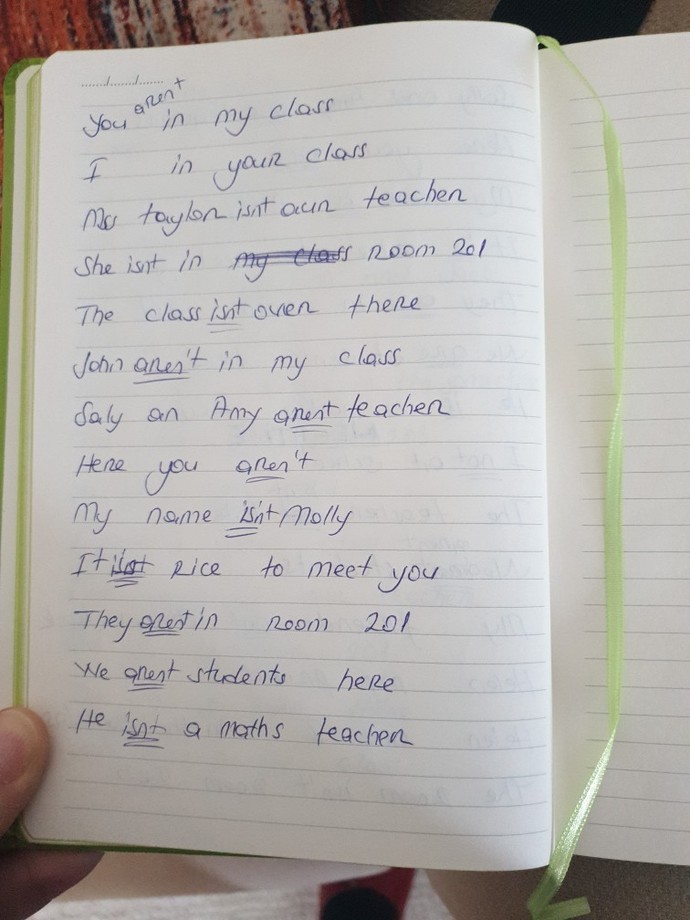 ......./......./.......
You aren't in my class
I in your class
Mrs taylor isnt our teacher
She isn't in my class room 201
The class isn't over there
John aren't in my class
Saly an Amy arent teacher
Here you aren't
My name isn't Molly
It isn't nice to meet you
They arent in room 201
We arent students here
He isnt a maths teacher